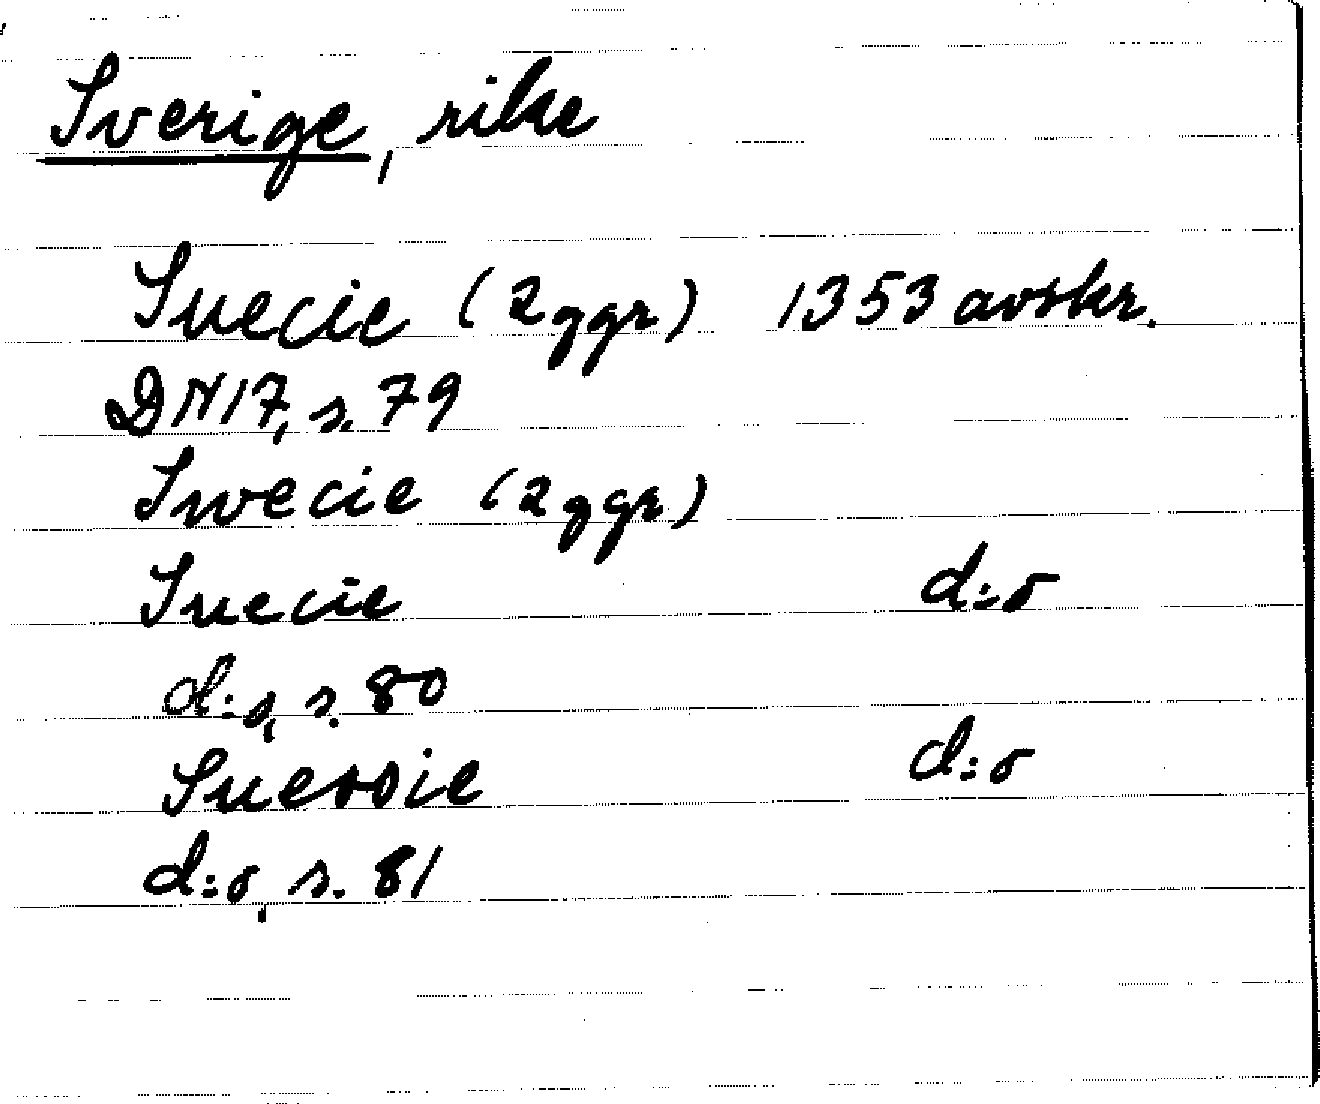 Sverige, rike
Suecie (2 ggr) 1353 avskr.
DN 17, s. 79
Swecie (2 ggr)
Suecie d:o
d:o, s. 80
Suessie d:o
d:o, s. 81